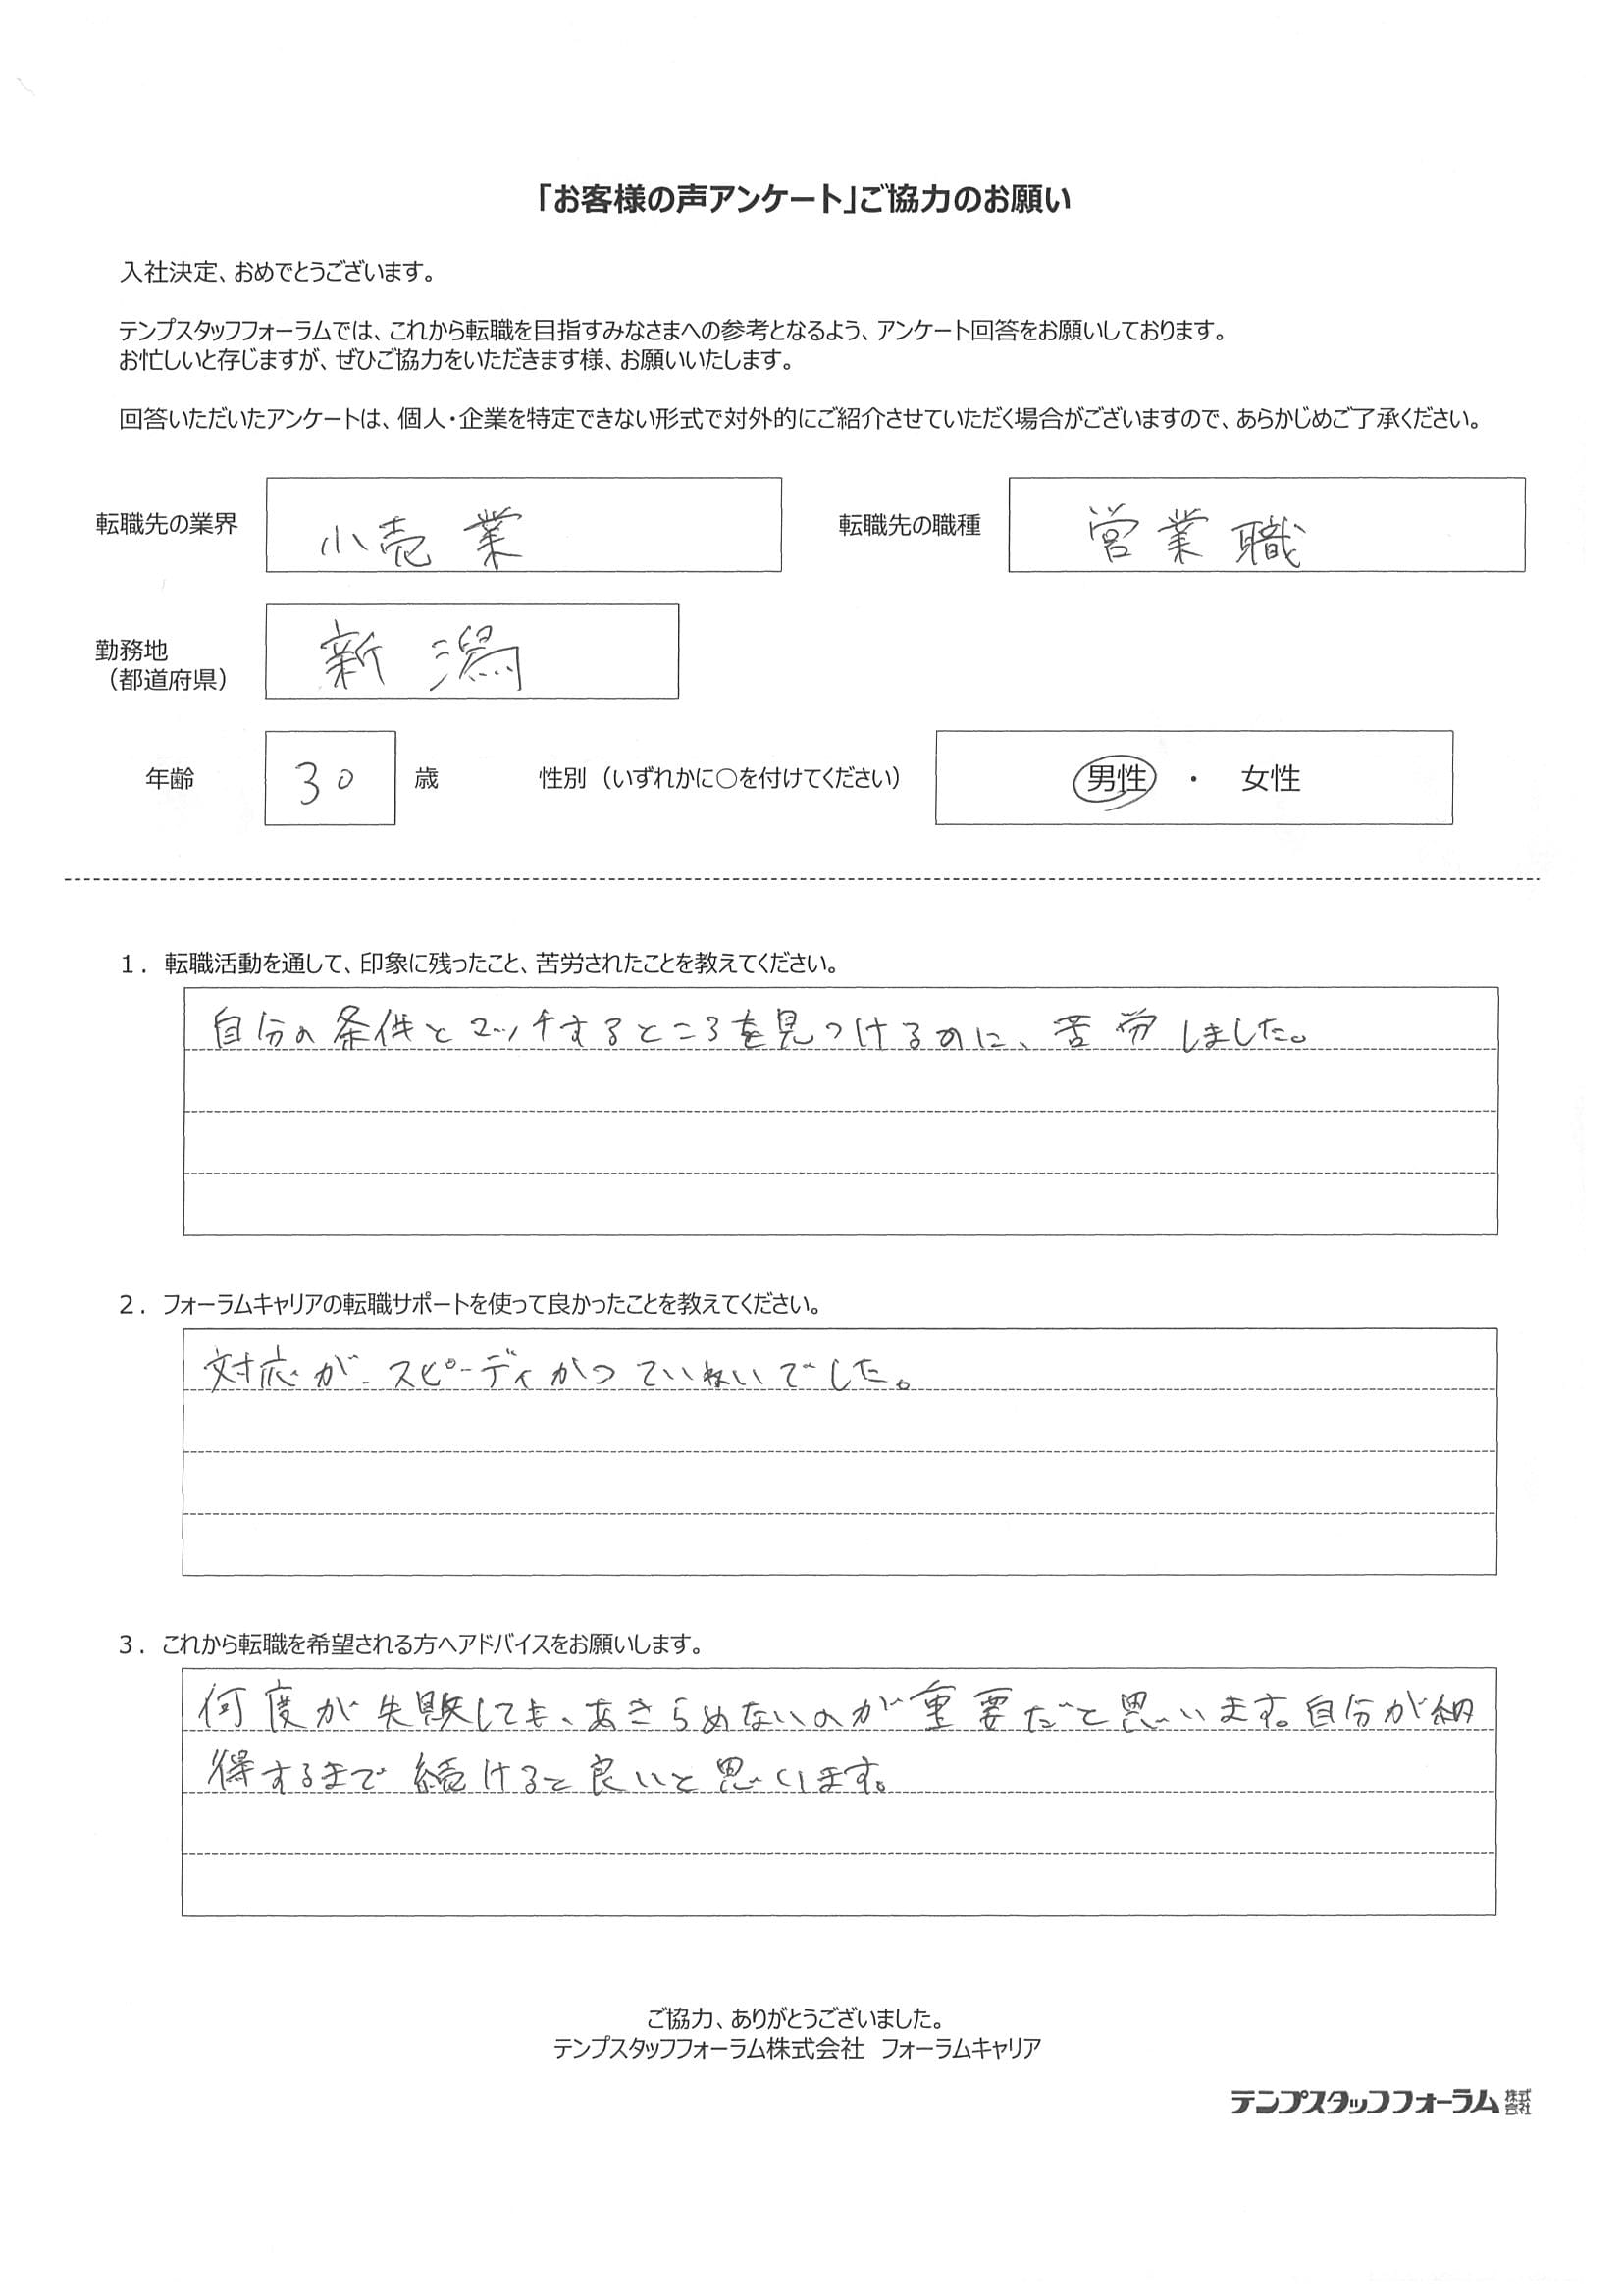 「お客様の声アンケート」ご協力のお願い
入社決定、おめでとうございます。
テンプスタッフフォーラムでは、これから転職を目指すみなさまへの参考となるよう、アンケート回答をお願いしております。
お忙しいと存じますが、ぜひご協力をいただきます様、お願いいたします。
回答いただいたアンケートは、個人・企業を特定できない形式で対外的にご紹介させていただく場合がございますので、あらかじめご了承ください。
転職先の業界 小売業 転職先の職種 営業職
勤務地
（都道府県） 新潟
年齢 30 歳 性別（いずれかに○を付けてください） 男性 ・ 女性
1. 転職活動を通して、印象に残ったこと、苦労されたことを教えてください。
自分の条件とマッチするところを見つけるのに、苦労しました。
2. フォーラムキャリアの転職サポートを使って良かったことを教えてください。
対応が、スピーディかつていねいでした。
3. これから転職を希望される方へアドバイスをお願いします。
何度が失敗しても、あきらめないのが重要だと思います。自分が納
得するまで続けると良いと思います。
ご協力、ありがとうございました。
テンプスタッフフォーラム株式会社 フォーラムキャリア
テンプスタッフフォーラム株式会社